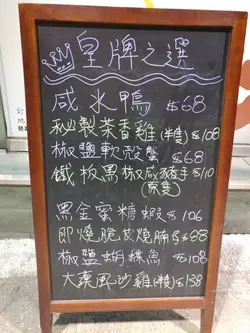 皇牌之選
咸水鴨 $68
秘製茶香雞(半隻)$108
椒鹽軟殼蟹 $68
鐵板黑椒咸豬手$110
(原隻)
黑金蜜糖蝦$106
即燒脆皮燒腩仔$68
椒鹽蝴蝶魚$108
大漠風沙雞(半隻)$138